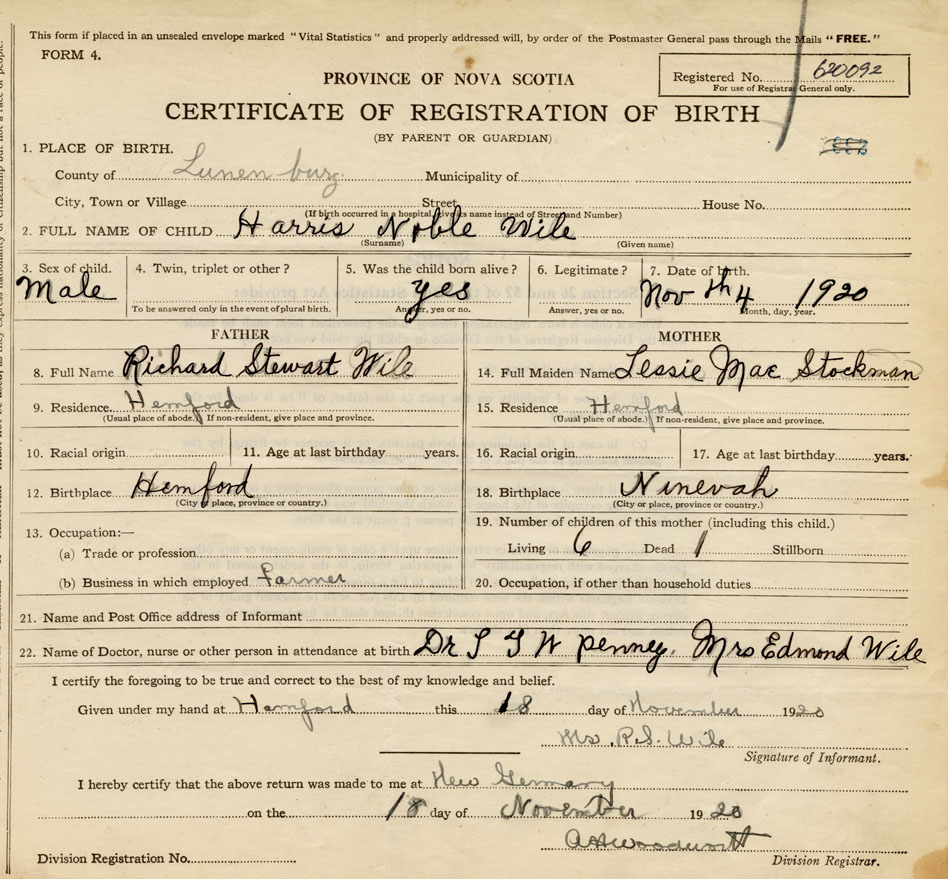 This form if placed in an unsealed envelope marked "Vital Statistics" and properly addressed will, by order of the Postmaster General pass through the Mails "FREE."
FORM 4.
Registered No. 620092
For use of Registrar General only.
PROVINCE OF NOVA SCOTIA
CERTIFICATE OF REGISTRATION OF BIRTH
(BY PARENT OR GUARDIAN)
1. PLACE OF BIRTH.
County of Lunenburg. Municipality of
City, Town or Village Street House No.
(If birth occurred in a hospital, give its name instead of Street and Number)
2. FULL NAME OF CHILD Harris Noble Wile
(Surname) (Given name)
3. Sex of child. 4. Twin, triplet or other? 5. Was the child born alive? 6. Legitimate? 7. Date of birth.
Male yes Nov th 4 1920
To be answered only in the event of plural birth. Answer, yes or no. Answer, yes or no. Month, day, year.
FATHER MOTHER
8. Full Name Richard Stewart Wile 14. Full Maiden Name Lessie Mae Stockman
9. Residence Hemford 15. Residence Hemford
(Usual place of abode.) If non-resident, give place and province. (Usual place of abode.) If non-resident, give place and province.
10. Racial origin 11. Age at last birthday years. 16. Racial origin 17. Age at last birthday years.
12. Birthplace Hemford 18. Birthplace Ninevah
(City or place, province or country.) (City or place, province or country.)
13. Occupation:— 19. Number of children of this mother (including this child.)
(a) Trade or profession Living 6 Dead 1 Stillborn
(b) Business in which employed Farmer 20. Occupation, if other than household duties
21. Name and Post Office address of Informant
22. Name of Doctor, nurse or other person in attendance at birth Dr S G W Penney. Mrs Edmond Wile
I certify the foregoing to be true and correct to the best of my knowledge and belief.
Given under my hand at Hemford this 18 day of November 1920
Mrs. R.S. Wile
Signature of Informant.
I hereby certify that the above return was made to me at New Germany
on the 18 day of November 1920
Division Registration No. Division Registrar.